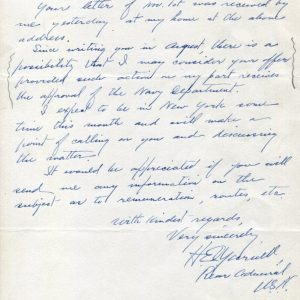 Your letter of Nov. 1st was received by
me yesterday at my home at the above
address.
Since writing you in August, there is a
possibility that I may consider your offer
provided such action on my part receives
the approval of the Navy Department.
I expect to be in New York some
time this month and will make a
point of calling on you and discussing
the matter.
It would be appreciated if you will
send me any information on the
subject as to remuneration, routes, etc
With kindest regards,
Very sincerely,
H E Yarnell
Rear Admiral
U.S.N.